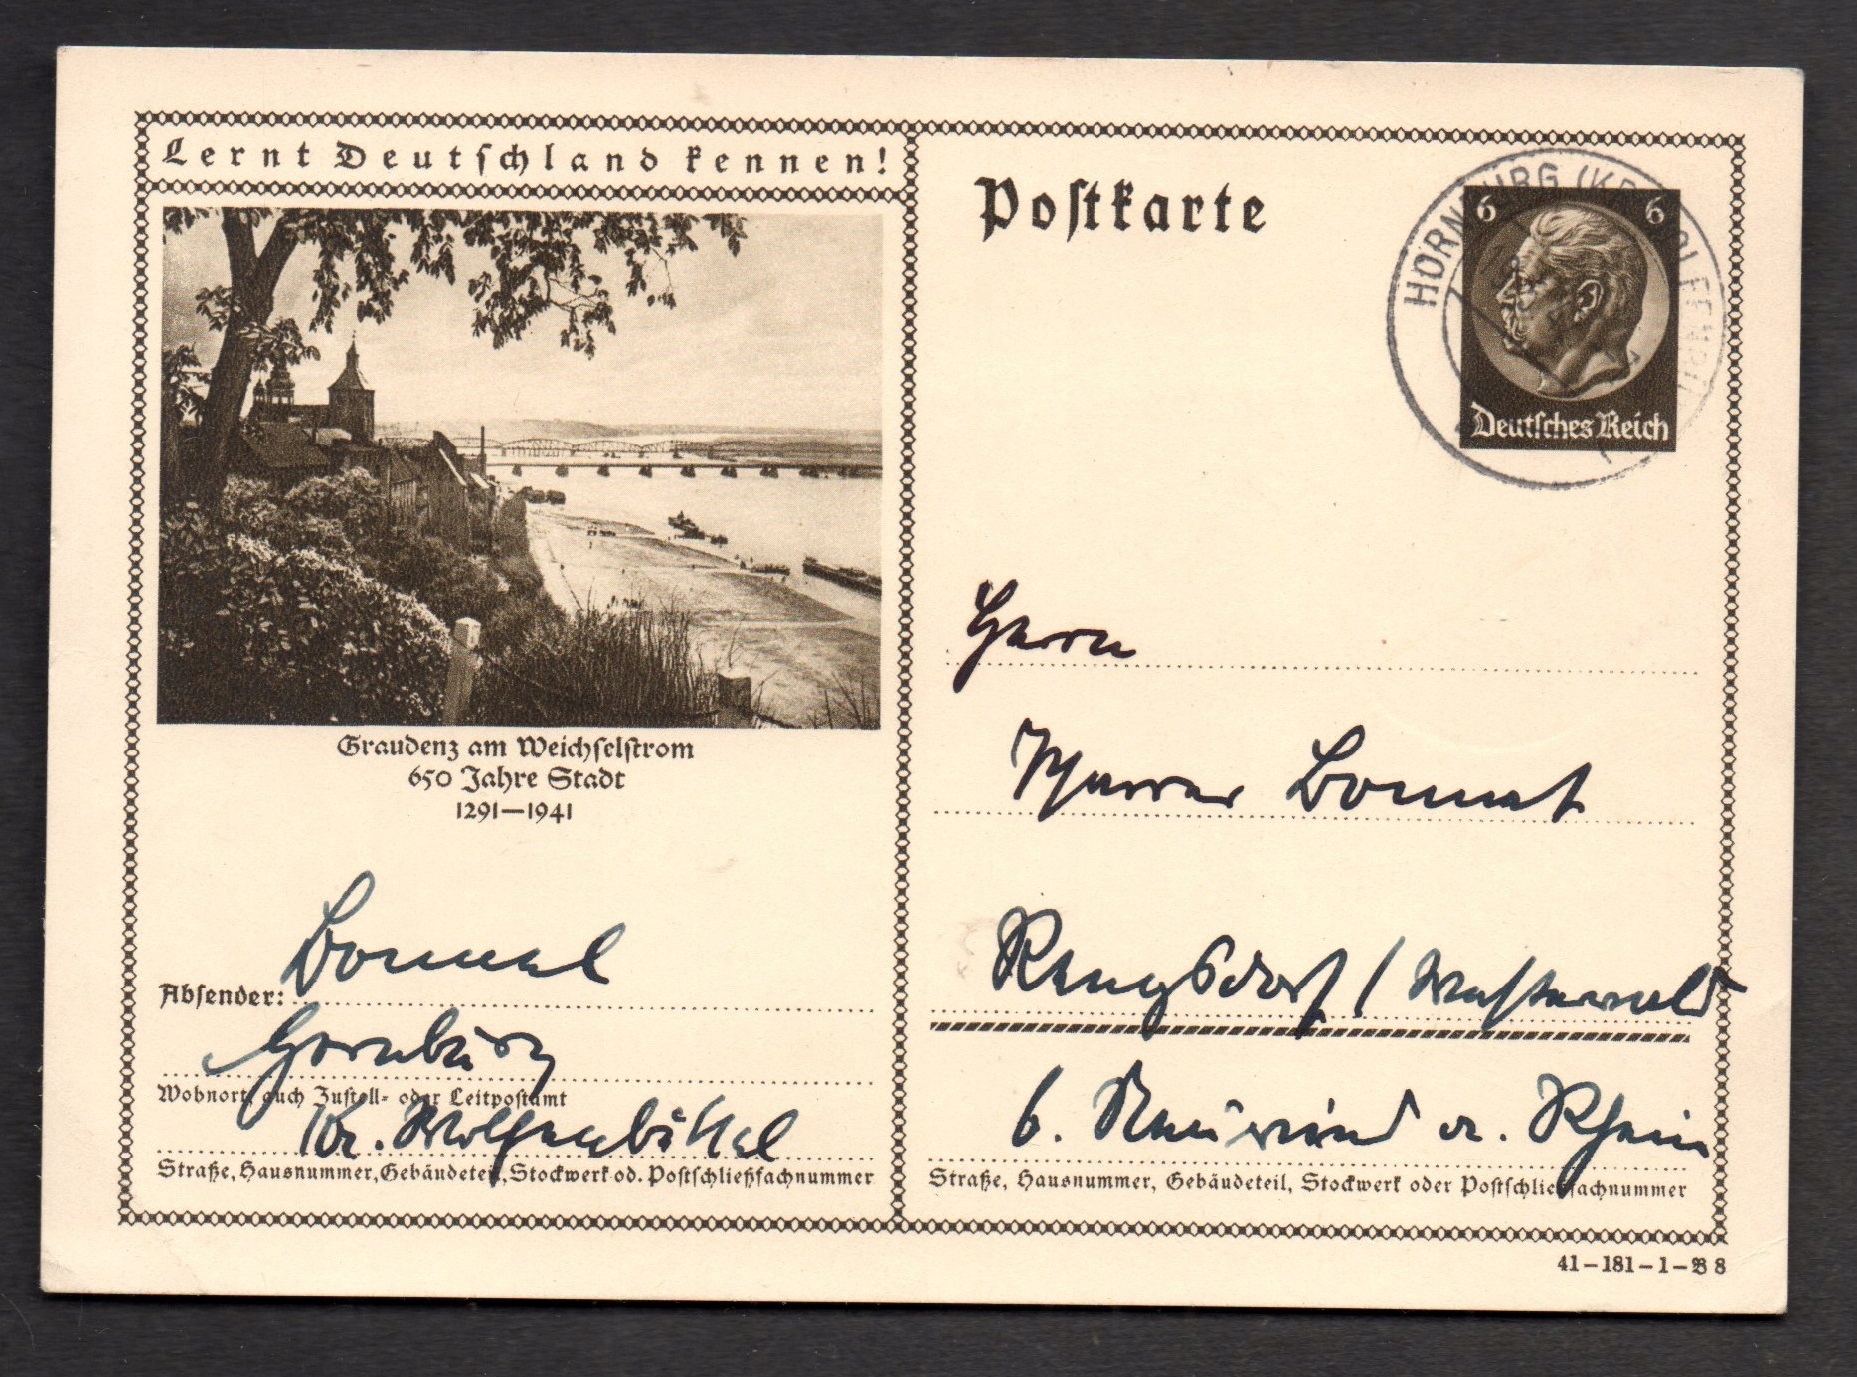 Lernt Deutschland kennen!
Graudenz am Weichselstrom
650 Jahre Stadt
1291—1941
Absender:
Hornburg
Wohnort, auch Zustell- oder Leitpostamt
Kr. Wolfenbüttel
Straße, Hausnummer, Gebäudeteil, Stockwerk od. Postschließfachnummer
Postkarte
HORNBURG (KR
6 6
Deutsches Reich
Herrn
Pfarrer
Rengsdorf / Westerwald
b. Neuwied a. Rhein
Straße, Hausnummer, Gebäudeteil, Stockwerk oder Postschließfachnummer
41-181-1-B 8